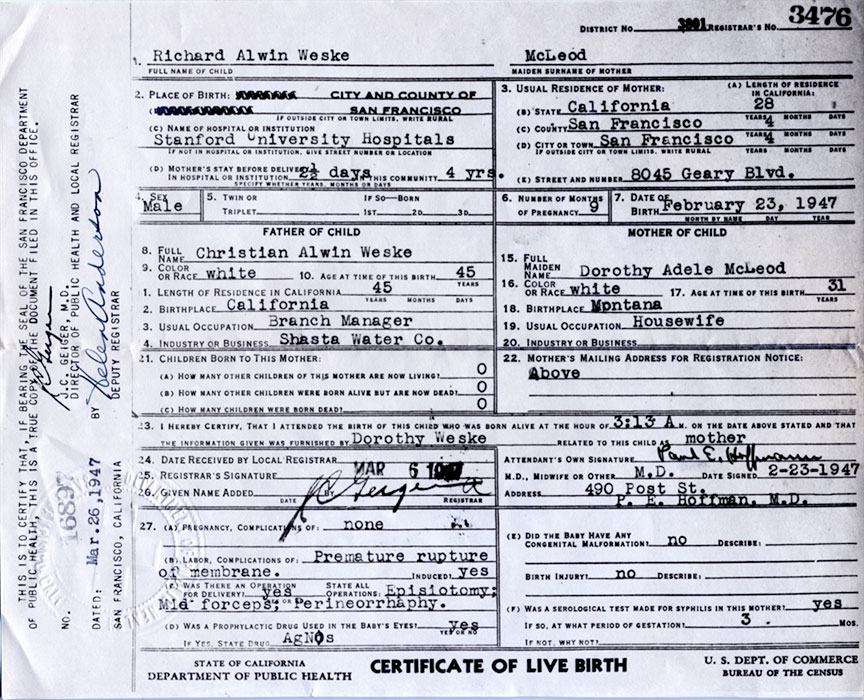 DISTRICT NO. 3801 REGISTRAR'S NO. 3476
1. Richard Alwin Weske McLeod
FULL NAME OF CHILD MAIDEN SURNAME OF MOTHER
2. PLACE OF BIRTH: CITY AND COUNTY OF
SAN FRANCISCO
IF OUTSIDE CITY OR TOWN LIMITS, WRITE RURAL
(C) NAME OF HOSPITAL OR INSTITUTION
Stanford University Hospitals
IF NOT IN HOSPITAL OR INSTITUTION, GIVE STREET NUMBER OR LOCATION
(D) MOTHER'S STAY BEFORE DELIVERY:
IN HOSPITAL OR INSTITUTION 2½ days IN THIS COMMUNITY 4 yrs.
SPECIFY WHETHER YEARS, MONTHS OR DAYS
3. USUAL RESIDENCE OF MOTHER: (A) LENGTH OF RESIDENCE
IN CALIFORNIA:
(B) STATE California 28
YEARS MONTHS DAYS
(C) COUNTY San Francisco 4
YEARS MONTHS DAYS
(D) CITY OR TOWN San Francisco 4
IF OUTSIDE CITY OR TOWN LIMITS, WRITE RURAL YEARS MONTHS DAYS
(E) STREET AND NUMBER 8045 Geary Blvd.
4. SEX
Male
5. TWIN OR IF SO—BORN
TRIPLET 1ST 2D 3D
6. NUMBER OF MONTHS
OF PREGNANCY 9
7. DATE OF
BIRTH February 23, 1947
MONTH BY NAME DAY YEAR
FATHER OF CHILD
8. FULL
NAME Christian Alwin Weske
9. COLOR
OR RACE white 10. AGE AT TIME OF THIS BIRTH 45
YEARS
1. LENGTH OF RESIDENCE IN CALIFORNIA 45
YEARS MONTHS DAYS
2. BIRTHPLACE California
3. USUAL OCCUPATION Branch Manager
4. INDUSTRY OR BUSINESS Shasta Water Co.
MOTHER OF CHILD
15. FULL
MAIDEN
NAME Dorothy Adele McLeod
16. COLOR
OR RACE white 17. AGE AT TIME OF THIS BIRTH 31
YEARS
18. BIRTHPLACE Montana
19. USUAL OCCUPATION Housewife
20. INDUSTRY OR BUSINESS
21. CHILDREN BORN TO THIS MOTHER:
(A) HOW MANY OTHER CHILDREN OF THIS MOTHER ARE NOW LIVING? 0
(B) HOW MANY OTHER CHILDREN WERE BORN ALIVE BUT ARE NOW DEAD? 0
(C) HOW MANY CHILDREN WERE BORN DEAD? 0
22. MOTHER'S MAILING ADDRESS FOR REGISTRATION NOTICE:
Above
23. I HEREBY CERTIFY, THAT I ATTENDED THE BIRTH OF THIS CHILD WHO WAS BORN ALIVE AT THE HOUR OF 3:13 A M. ON THE DATE ABOVE STATED AND THAT
THE INFORMATION GIVEN WAS FURNISHED BY Dorothy Weske RELATED TO THIS CHILD AS mother
24. DATE RECEIVED BY LOCAL REGISTRAR MAR 6 1947
25. REGISTRAR'S SIGNATURE J C Geiger
26. GIVEN NAME ADDED BY
DATE REGISTRAR
ATTENDANT'S OWN SIGNATURE Paul E. Hoffmann
M.D., MIDWIFE OR OTHER M.D. DATE SIGNED 2-23-1947
ADDRESS 490 Post St.
P. E. Hoffman, M.D.
27. (A) PREGNANCY, COMPLICATIONS OF: none
(B) LABOR, COMPLICATIONS OF: Premature rupture
of membrane. INDUCED? yes
(C) WAS THERE AN OPERATION STATE ALL
FOR DELIVERY? yes OPERATIONS: Episiotomy;
Mid forceps; Perineorrhaphy.
(D) WAS A PROPHYLACTIC DRUG USED IN THE BABY'S EYES? yes
YES OR NO
IF YES, STATE DRUG AgNO3
(E) DID THE BABY HAVE ANY
CONGENITAL MALFORMATION? no DESCRIBE:
BIRTH INJURY? no DESCRIBE:
(F) WAS A SEROLOGICAL TEST MADE FOR SYPHILIS IN THIS MOTHER? yes
IF SO, AT WHAT PERIOD OF GESTATION? 3 MOS.
IF NOT, WHY NOT?
STATE OF CALIFORNIA
DEPARTMENT OF PUBLIC HEALTH
CERTIFICATE OF LIVE BIRTH
U. S. DEPT. OF COMMERCE
BUREAU OF THE CENSUS
THIS IS TO CERTIFY THAT, IF BEARING THE SEAL OF THE SAN FRANCISCO DEPARTMENT
OF PUBLIC HEALTH, THIS IS A TRUE COPY OF THE DOCUMENT FILED IN THIS OFFICE.
J C Geiger
J. C. GEIGER, M.D.
DIRECTOR OF PUBLIC HEALTH AND LOCAL REGISTRAR
NO. 16897
BY Helen Anderson
DEPUTY REGISTRAR
DATED: Mar.26,1947
SAN FRANCISCO, CALIFORNIA